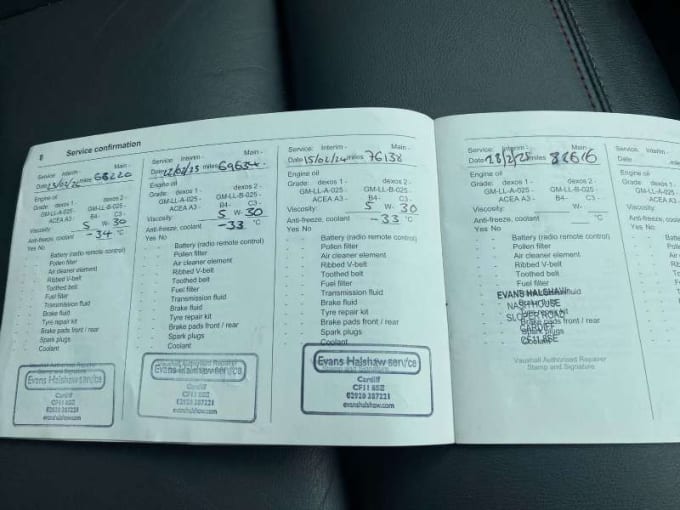 8 Service confirmation
Service: Interim - Main -
miles 68220
Engine oil
Grade: dexos 1 - dexos 2 -
GM-LL-A-025 - GM-LL-B-025 -
ACEA A3 - B4- C3 -
Viscosity: 5 W- 30
Anti-freeze, coolant -34 °C
Yes No
Battery (radio remote control)
Pollen filter
Air cleaner element
Ribbed V-belt
Toothed belt
Fuel filter
Transmission fluid
Brake fluid
Tyre repair kit
Brake pads front / rear
Spark plugs
Coolant
Vauxhall Authorised Repairer
Evans Halshaw service
Cardiff
CF11 8SE
02920 387221
evanshalshaw.com
Service: Interim - Main -
Date miles 69634
Engine oil
Grade: dexos 1 - dexos 2 -
GM-LL-A-025 - GM-LL-B-025 -
ACEA A3 - B4- C3 -
Viscosity: 5 W- 30
Anti-freeze, coolant -33 °C
Yes No
Battery (radio remote control)
Pollen filter
Air cleaner element
Ribbed V-belt
Toothed belt
Fuel filter
Transmission fluid
Brake fluid
Tyre repair kit
Brake pads front / rear
Spark plugs
Coolant
Vauxhall Authorised Repairer
Evans Halshaw service
Cardiff
CF11 8SE
02920 387221
evanshalshaw.com
Service: Interim - Main -
Date 15/02/24 miles 76138
Engine oil
Grade: dexos 1 - dexos 2 -
GM-LL-A-025 - GM-LL-B-025 -
ACEA A3 - B4- C3 -
Viscosity: 5 W- 30
Anti-freeze, coolant -33 °C
Yes No
Battery (radio remote control)
Pollen filter
Air cleaner element
Ribbed V-belt
Toothed belt
Fuel filter
Transmission fluid
Brake fluid
Tyre repair kit
Brake pads front / rear
Spark plugs
Coolant
Evans Halshaw service
Stamp and Signature
Cardiff
CF11 8SE
02920 387221
evanshalshaw.com
Service: Interim - Main -
Date 28/2/25 miles
Engine oil
Grade: dexos 1 - dexos 2 -
GM-LL-A-025 - GM-LL-B-025 -
ACEA A3 - B4- C3 -
Viscosity: W-
Anti-freeze, coolant °C
Yes No
Battery (radio remote control)
Pollen filter
Air cleaner element
Ribbed V-belt
Toothed belt
Fuel filter
EVANS HALSHAW
NASH HOUSE
SLOPER ROAD
CARDIFF
Brake pads front / rear
Spark plugs
Vauxhall Authorised Repairer
Stamp and Signature
Service: Interim
Date
Engine oil
Grade: dexos 1
GM-LL-A-02
ACEA A3
Viscosity:
Anti-freeze, coola
Yes No
Batte
Polle
Air c
Ribb
Toot
Fue
Tra
Bra